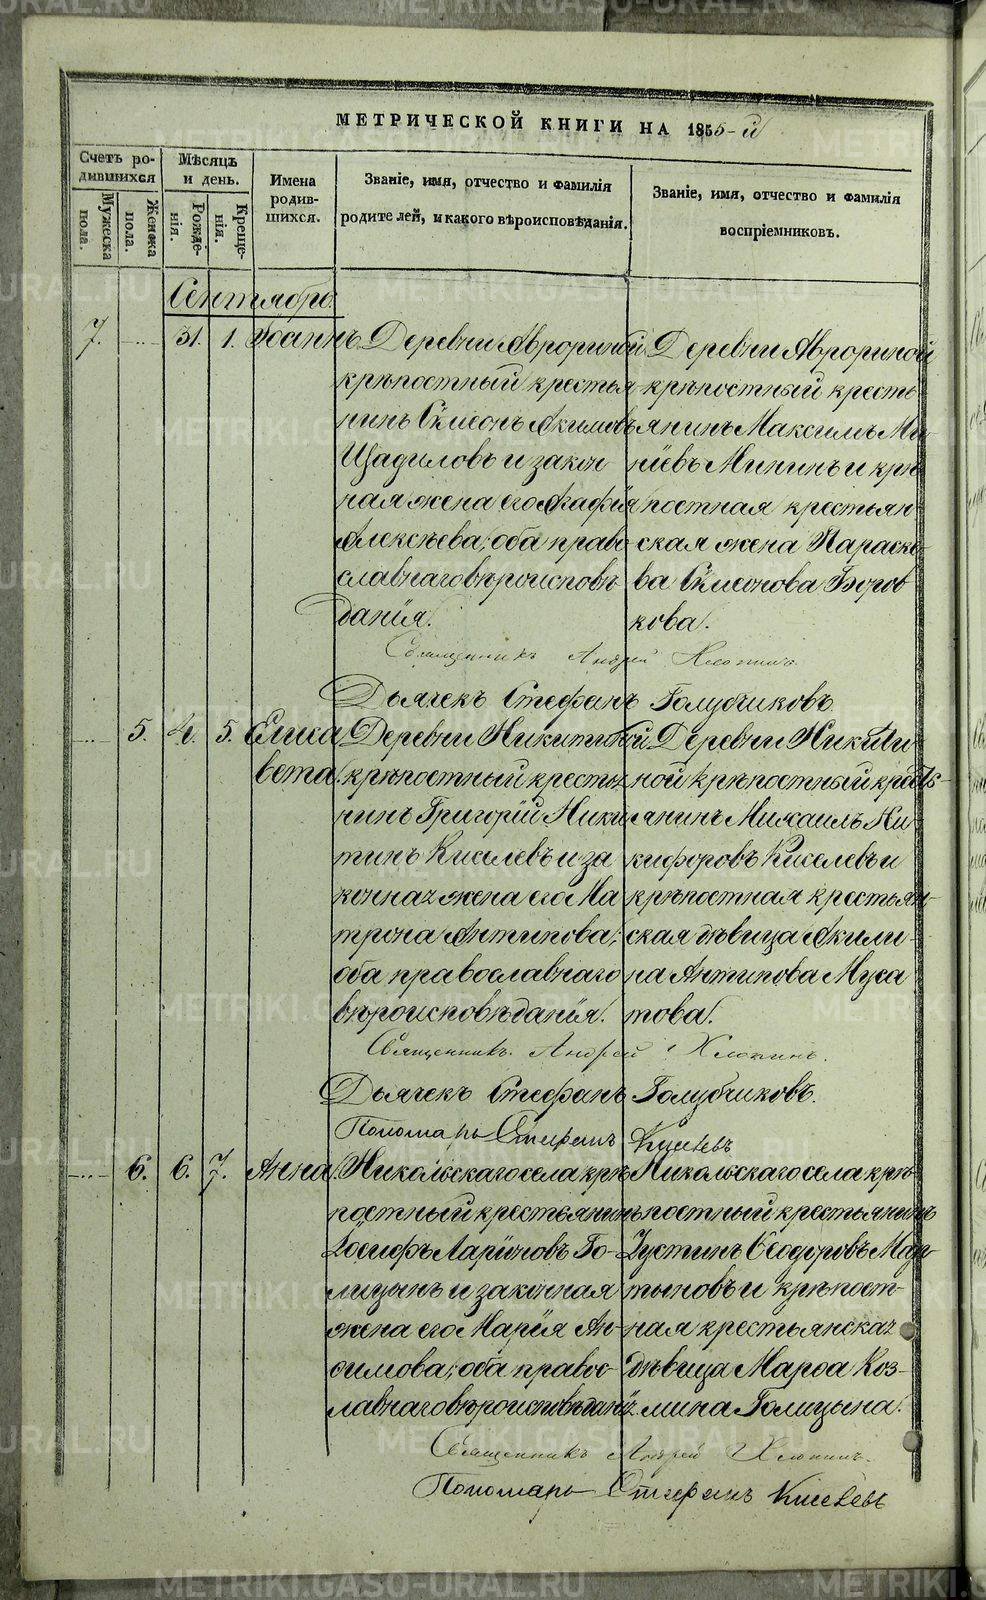 МЕТРИЧЕСКОЙ КНИГИ НА 1855-й
Счетъ родившихся
Мѣсяцъ и день.
Имена родившихся.
Званіе, имя, отчество и фамилія родителей, и какого вѣроисповѣданія.
Званіе, имя, отчество и фамилія воспріемниковъ.
Мужеска пола.
Женска пола.
Рожденія.
Крещенія.
Сентябрь
7.
31.
1.
Іоаннъ
Деревни Аврориной
крѣпостный крестья
нинъ Сѵмеонъ Акимовъ
Щадиловъ и закон
ная жена его Агафія
Алексѣева; оба право
славнаго вѣроисповѣ
данія.
Деревни Аврориной
крѣпостный кресть
янинъ Максимъ Ми
нѣевъ Мининъ и крѣ
постная крестьян
ская жена Параске
ва Сѵмеонова
кова.
Священникъ Андрей Хлопинъ.
Дьячекъ Стефанъ Голубчиковъ.
5.
4.
5.
Елиса
вета.
Деревни Никитиной
крѣпостный крестья
нинъ Григорій Ники
тинъ Киселевъ и за
конная жена его Ма
трона Антипова;
оба православнаго
вѣроисповѣданія.
Деревни Никити
ной крѣпостный кресть
янинъ Михаилъ Ни
кифоровъ Киселевъ и
крѣпостная крестьян
ская дѣвица Акили
на Антипова Муса
това.
Священникъ Андрей Хлопинъ.
Дьячекъ Стефанъ Голубчиковъ.
Пономарь Стефанъ Киселевъ
6.
6.
7.
Анна.
Никольскаго села крѣ
постный крестьянинъ
Іосифъ Ларіоновъ Го-
лицынъ и законная
жена его Марія Ан-
симова; оба правос-
лавнаго вѣроисповѣданія.
Никольскаго села крѣ
постный крестьянинъ
Іустинъ Ѳеодоровъ Мар-
тыновъ и крѣпост-
ная крестьянская
дѣвица Марѳа Коз-
мина Голицына.
Священникъ Андрей Хлопинъ.
Пономарь Стефанъ Киселевъ
METRIKI.GASO-URAL.RU